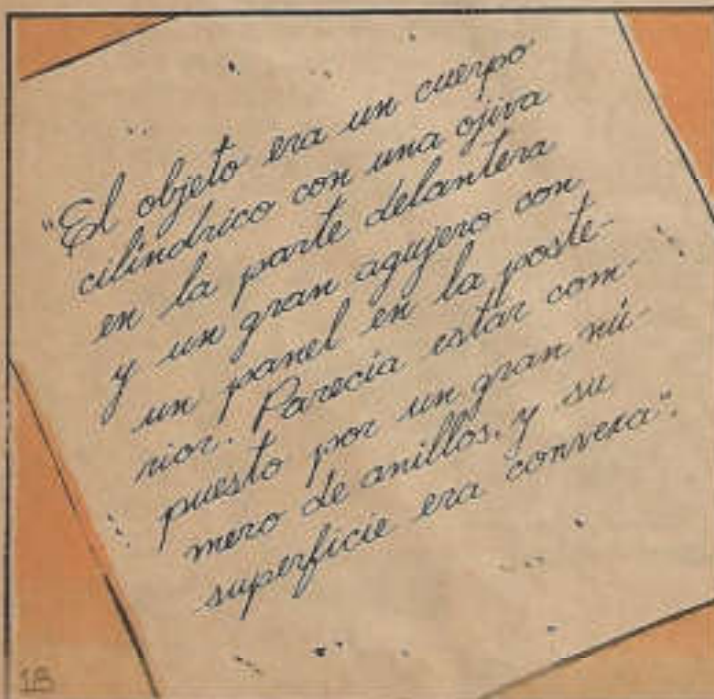 "El objeto era un cuerpo
cilíndrico con una ojiva
en la parte delantera
y un gran agujero con
un panel en la poste-
rior. Parecía estar com-
puesto por un gran nú-
mero de anillos, y su
superficie era convexa".
18